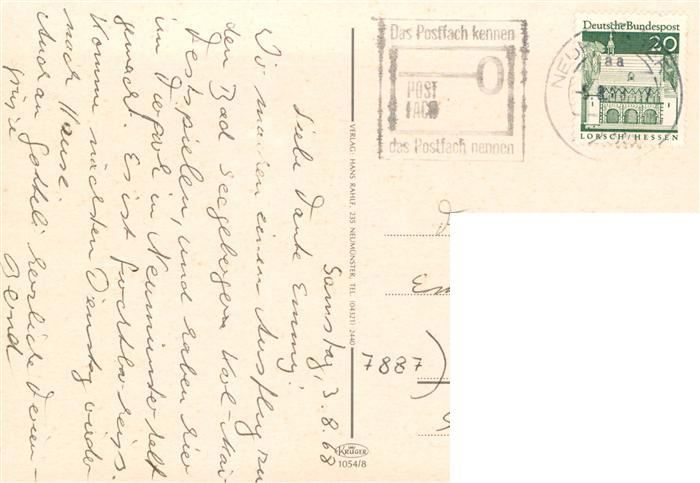 Samstag, 3.8.68
Liebe Tante Emmy!
Wir machen einen Ausflug zu
den Bad Seegebergern Karl-Mai-
Festspielen, und haben hier
im Tierpark in Neumünster halt
gemacht. Es ist furchtbar heiß.
Komme nächsten Dienstag wieder
nach Hause.
Auch an Gotteli herzliche Ferien-
grüße
Bernd
VERLAG: HANS RAHLF, 235 NEUMÜNSTER, TEL. (04321) 2440
KRÜGER
1054/8
Das Postfach kennen
POST
FACH
das Postfach nennen
Deutsche Bundespost
20
LORSCH/HESSEN
aa
7887)